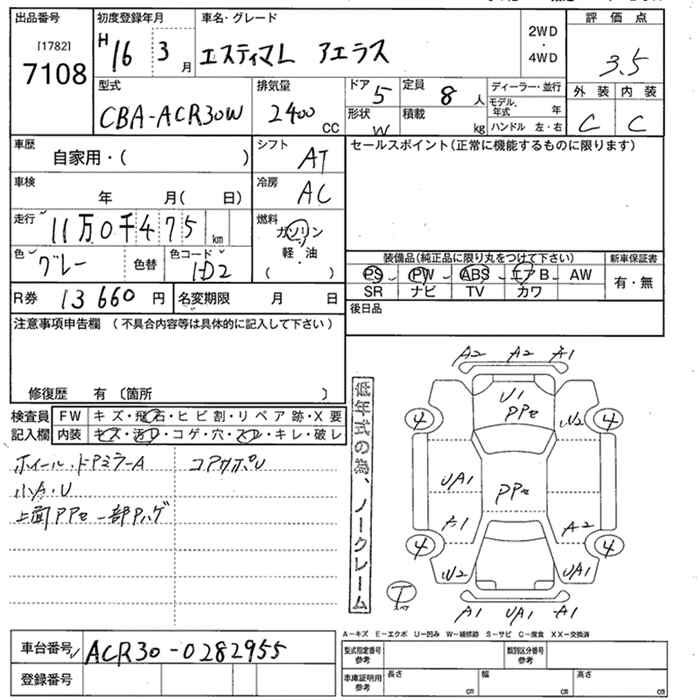 出品番号 初度登録年月 車名・グレード 評価点
[1782] 7108 H16 3月 エスティマL アエラス 2WD・4WD 3.5
型式 排気量 ドア 5 定員 8人 ディーラー・並行 外装 内装
CBA-ACR30W 2400 CC 形状 W 積載 kg モデル年式 年 C C
ハンドル 左・右
車歴 自家用・( ) シフト AT セールスポイント(正常に機能するものに限ります)
車検 年 月( 日) 冷房 AC
走行 11万0千475km 燃料 ガソリン
色 グレー 色替 色コード 1D2 軽・油 ( ) 装備品(純正品に限り丸をつけて下さい) 新車保証書
PS PW ABS エアB AW 有・無
R券 13660円 名変期限 月 日 SR ナビ TV カワ
注意事項申告欄 (不具合内容等は具体的に記入して下さい) 後日品
修復歴 有 〔箇所 〕
検査員 FW キズ・飛石・ヒビ割・リペア跡・X要
記入欄 内装 キズ・汚れ・コゲ・穴・スレ・キレ・破レ
ホイール・ドアミラーA コアサポU
小A・U
上面PPセ 一部Pハゲ
低年式の為、ノークレーム
A2 A2 A1
U1
PPセ
4 W2 4
UA1 PPセ
A1 A2
4 4
W2 UA1
T
A1 UA1 A1
A-キズ E-エクボ U-凹み W-補修跡 S-サビ C-腐食 XX-交換済
車台番号 ACR30-0282955 型式指定番号 参考 類別区分番号 参考
登録番号 車庫証明用 参考 長さ cm 幅 cm 高さ cm